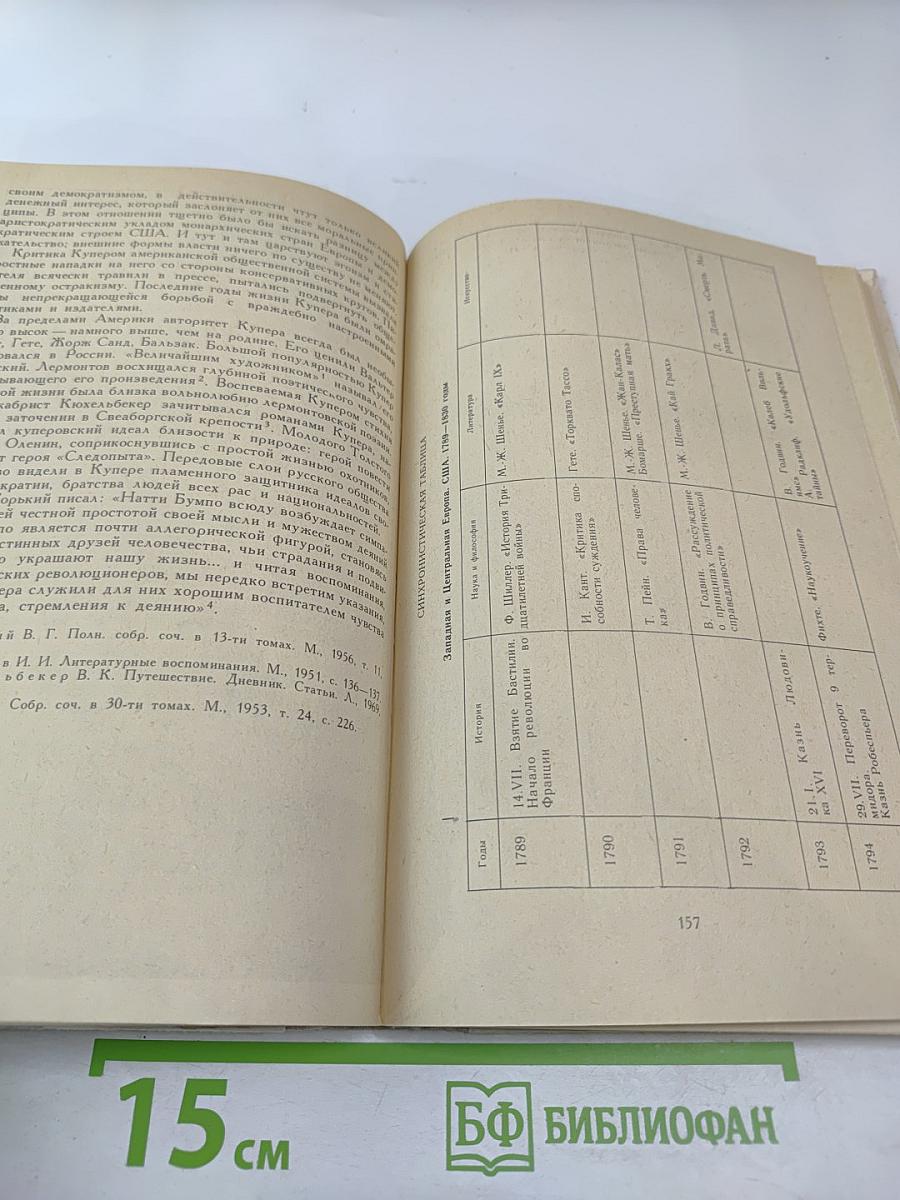 своим демократизмом, в действительности чтут только
денежный интерес, который заслоняет от них все моральные
ципы. В этом отношении тщетно было бы искать разницу
аристократическим укладом монархических стран Европы и
кратическим строем США. И тут и там царствуют эгоизм и
ательство; внешние формы власти ничего по существу не
Критика Купером американской общественной системы
ростные нападки на него со стороны консервативных кругов.
теля всячески травили в прессе, пытались подвергнуть
енному остракизму. Последние годы жизни Купера были
ы непрекращающейся борьбой с враждебно настроенными
тиками и издателями.
За пределами Америки авторитет Купера всегда был
о высок — намного выше, чем на родине. Его ценили Вальтер
, Гете, Жорж Санд, Бальзак. Большой популярностью Купер
овался в России. «Величайшим художником» называл его
ский. Лермонтов восхищался глубиной поэтического чувства,
ывающего его произведения². Воспеваемая Купером стихия
ой жизни была близка вольнолюбию лермонтовской поэзии.
кабрист Кюхельбекер зачитывался романами Купера,
заточении в Свеаборгской крепости³. Молодого Толстого
л куперовский идеал близости к природе: герой повести
Оленин, соприкоснувшись с простой жизнью охотников,
т героя «Следопыта». Передовые слои русского общества
во видели в Купере пламенного защитника идеалов сво-
кратии, братства людей всех рас и национальностей.
орький писал: «Натти Бумпо всюду возбуждает симпа-
ей честной простотой своей мысли и мужеством деяний
по является почти аллегорической фигурой, становясь
стинных друзей человечества, чьи страдания и подви-
о украшают нашу жизнь... и читая воспоминания,
ских революционеров, мы нередко встретим указания,
ера служили для них хорошим воспитателем чувства
а, стремления к деянию»⁴.
ий В. Г. Полн. собр. соч. в 13-ти томах. М., 1956, т. 11,
в И. И. Литературные воспоминания. М., 1951, с. 136—137.
ьбекер В. К. Путешествие. Дневник. Статьи. Л., 1969,
Собр. соч. в 30-ти томах. М., 1953, т. 24, с. 226.
СИНХРОНИСТИЧЕСКАЯ ТАБЛИЦА
Западная и Центральная Европа. США. 1789—1830 годы
Годы
История
Наука и философия
Литература
Искусство
1789
14.VII. Взятие Бастилии.
Начало революции во
Франции
Ф. Шиллер. «История Три-
дцатилетней войны»
М.-Ж. Шенье. «Карл IX»
Гете. «Торквато Тассо»
1790
И. Кант. «Критика спо-
собности суждения»
1791
Т. Пейн. «Права челове-
ка»
М.-Ж. Шенье. «Жан-Калас»
Бомарше. «Преступная мать»
1792
В. Годвин. «Рассуждение
о принципах политической
справедливости»
М.-Ж. Шенье. «Кай Гракх»
1793
21.I. Казнь Людови-
ка XVI
Л. Давид. «Смерть Ма-
рата»
1794
29.VII. Переворот 9 тер-
мидора.
Казнь Робеспьера
Фихте. «Наукоучение»
В. Годвин. «Калеб Виль-
ямс»
А. Радклиф. «Удольфские
тайны»
157
15 см
БФ БИБЛИОФАН